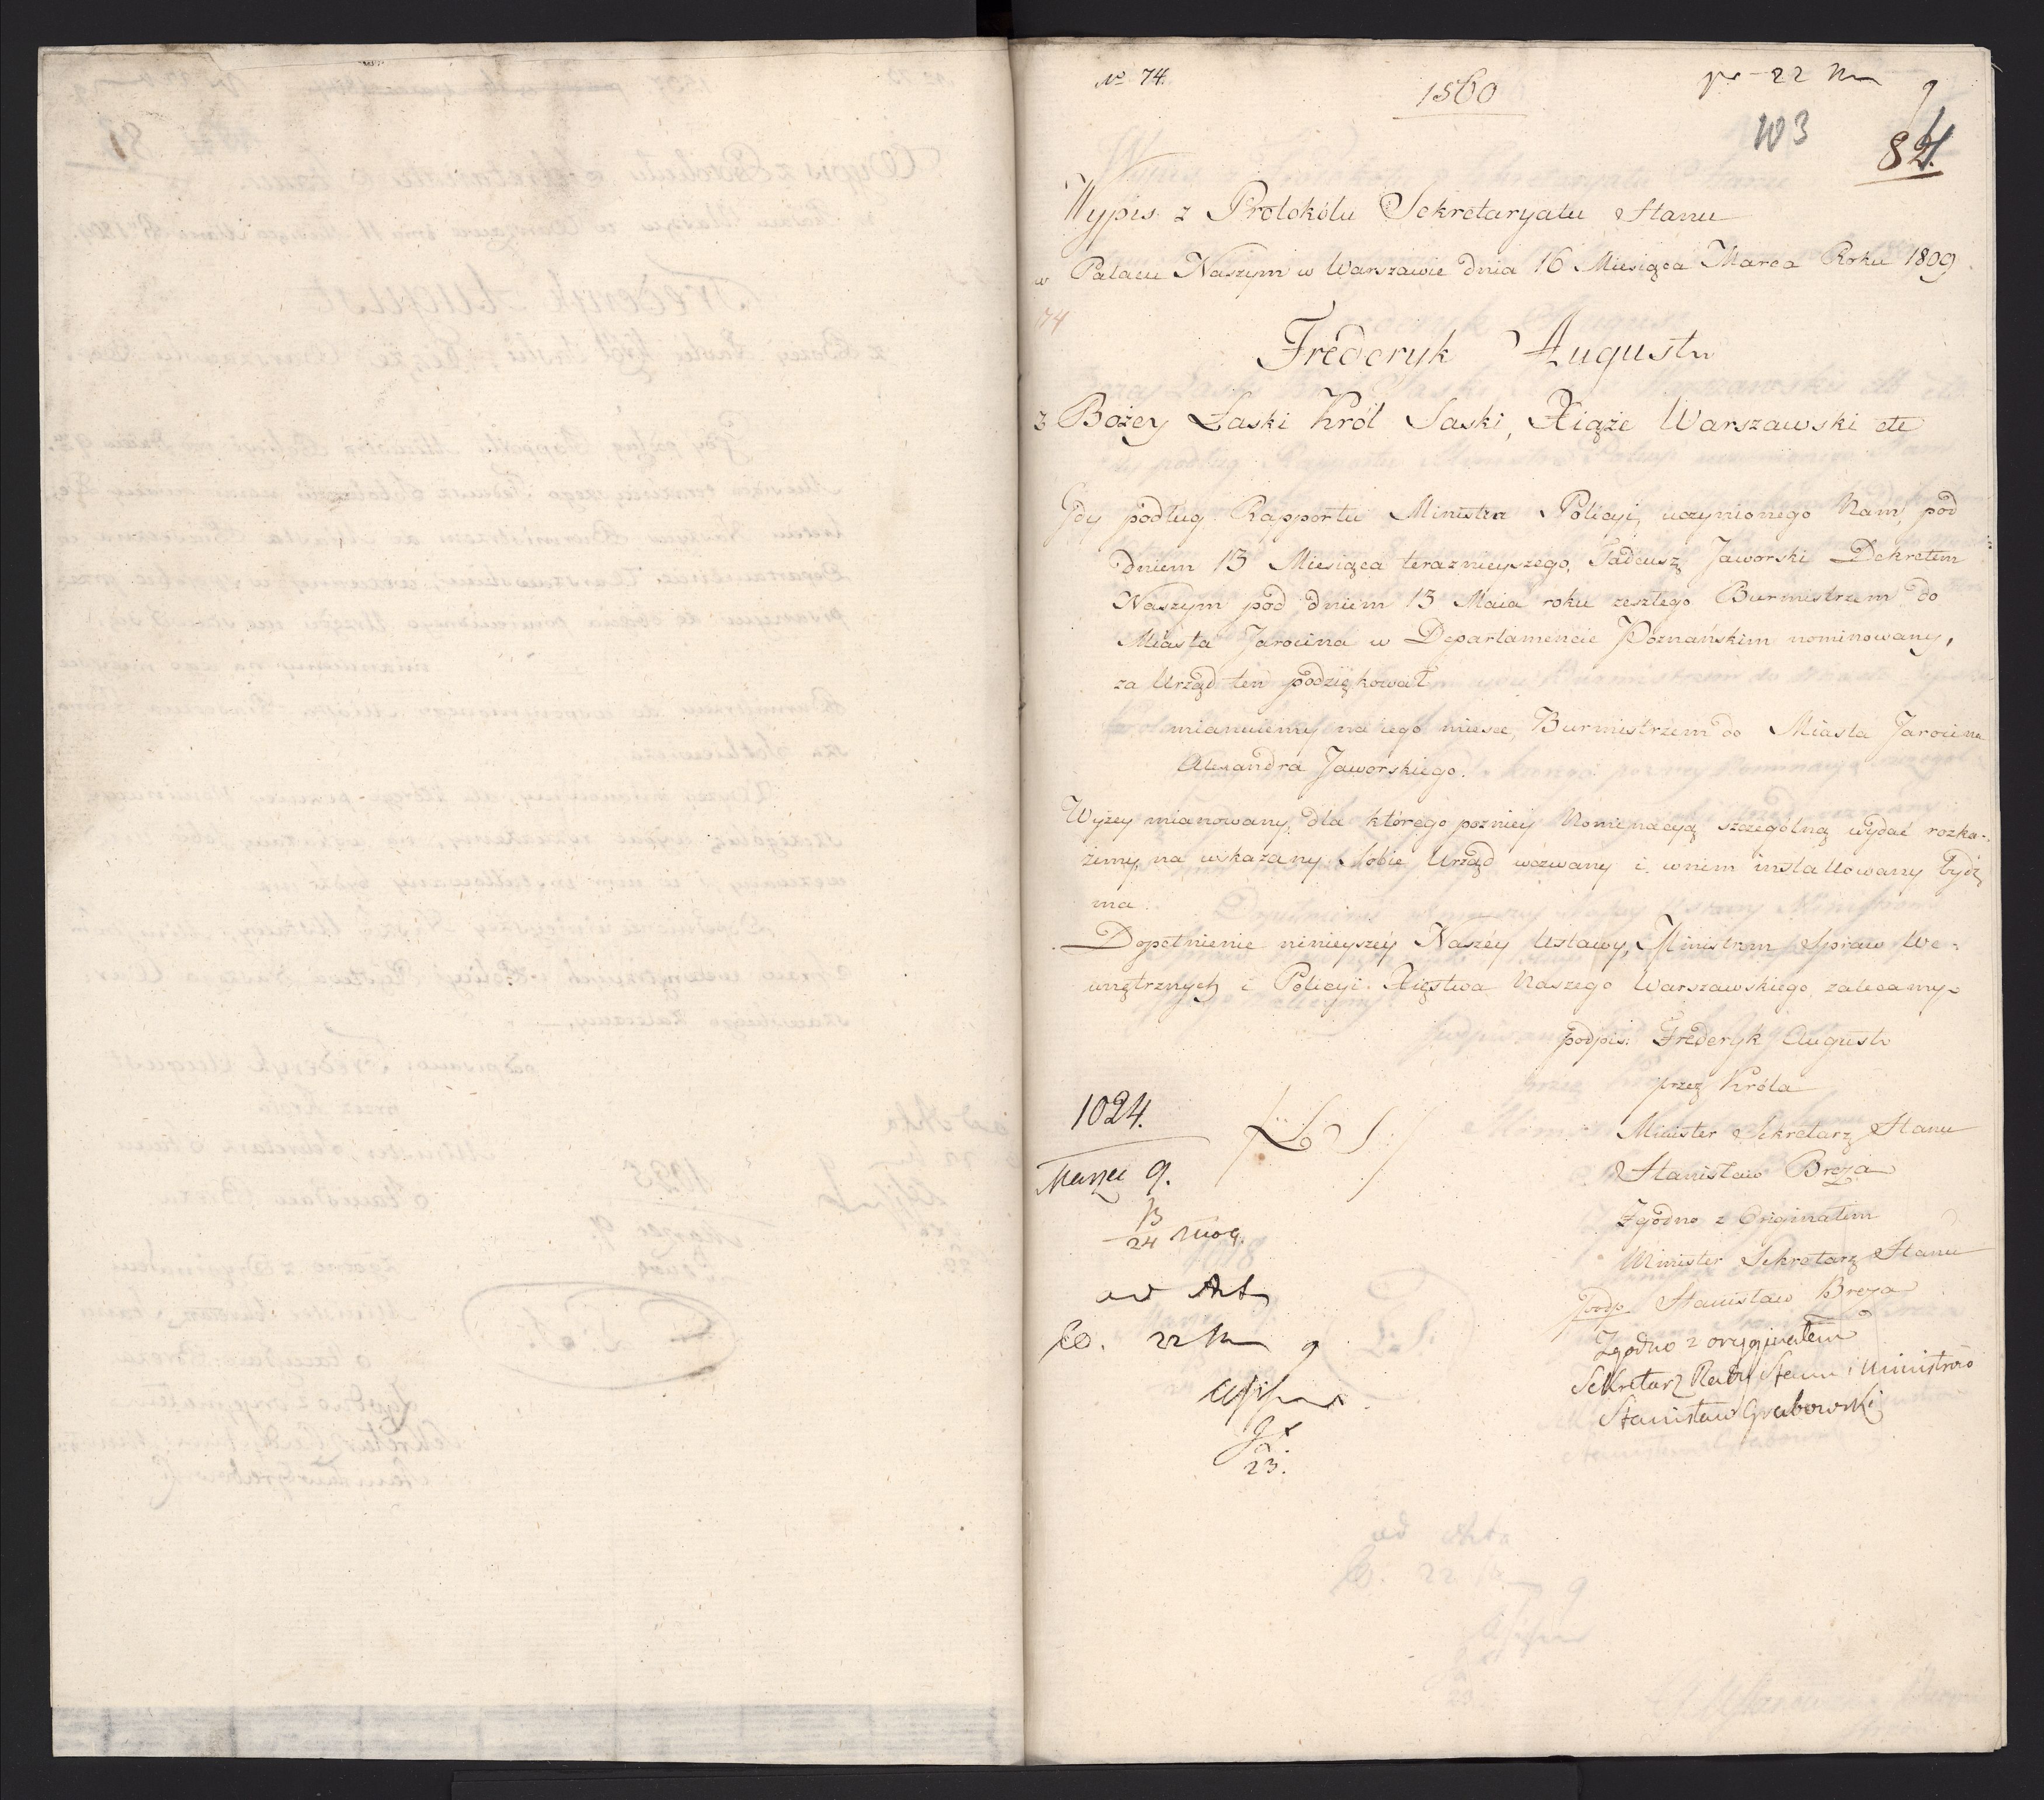 No 74.
1560
pr 22 9
103
84.
Wypis z Protokółu Sekretaryatu Stanu
w Pałacu Naszym w Warszawie dnia 16 Miesiąca Marca Roku 1809
74
Frederyk August
z Bożey Łaski Król Saski, Xiąże Warszawski etc
Gdy podług Rapportu Ministra Policyi, uczynionego Nam, pod
dniem 13 Miesiąca teraznieyszego, Tadeusz Jaworski Dekretem
Naszym pod dniem 13 Maia roku zeszłego Burmistrzem do
Miasta Jarocina w Departamencie Poznańskim nominowany,
za Urząd ten podziękował
mianuiemy na iego miesce, Burmistrzem do Miasta Jarocina
Alexandra Jaworskiego.
Wyżey mianowany, dla którego pozniey Nominacyą szczególną wydać rozka-
żemy, na wskazany Sobie Urząd wezwany i w nim installowany bydź
ma.
Dopełnienie ninieyszéy Naszéy Ustawy, Ministrom Spraw We-
wnętrznych i Policyi Xięstwa Naszego Warszawskiego zalecamy.
podpis: Frederyk August
przez Króla
1024.
L S
Minister Sekretarz Stanu
Marzec 9.
Stanisław Breza
Zgodno z Originałem
24
Minister Sekretarz Stanu
ad Acta
podp. Stanisław Breza
22 9
Zgodno z oryginałem
Sekretarz Rady Stanu i Ministrów
Stanisław Grabowski
23.